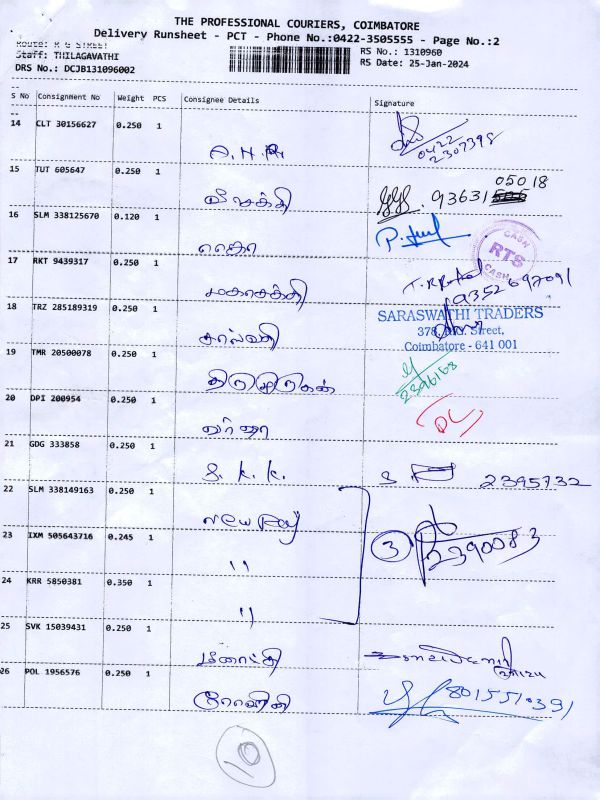 THE PROFESSIONAL COURIERS, COIMBATORE
Delivery Runsheet - PCT - Phone No.:0422-3505555 - Page No.:2
Route: R G STREET
Staff: THILAGAVATHI
DRS No.: DCJB131096002
RS No.: 1310960
RS Date: 25-Jan-2024
S No Consignment No Weight PCS Consignee Details Signature
14 CLT 30156627 0.250 1
0422
2307398
15 TUT 605647 0.250 1
93631 050 18
16 SLM 338125670 0.120 1
CASH
RTS
CASH
17 RKT 9439317 0.250 1 மகாசக்தி
9352697091
18 TRZ 285189319 0.250 1
SARASWATHI TRADERS
Street,
Coimbatore - 641 001
19 TMR 20500078 0.250 1 திருமுருகன்
2396168
20 DPI 200954 0.250 1
21 GDG 333858 0.250 1 S. K. K.
2395732
22 SLM 338149163 0.250 1 New Raj
23 IXM 505643716 0.245 1 "
3 2390083
24 KRR 5850381 0.350 1 "
25 SVK 15039431 0.250 1
26 POL 1956576 0.250 1 ரோஹிணி
8015510391